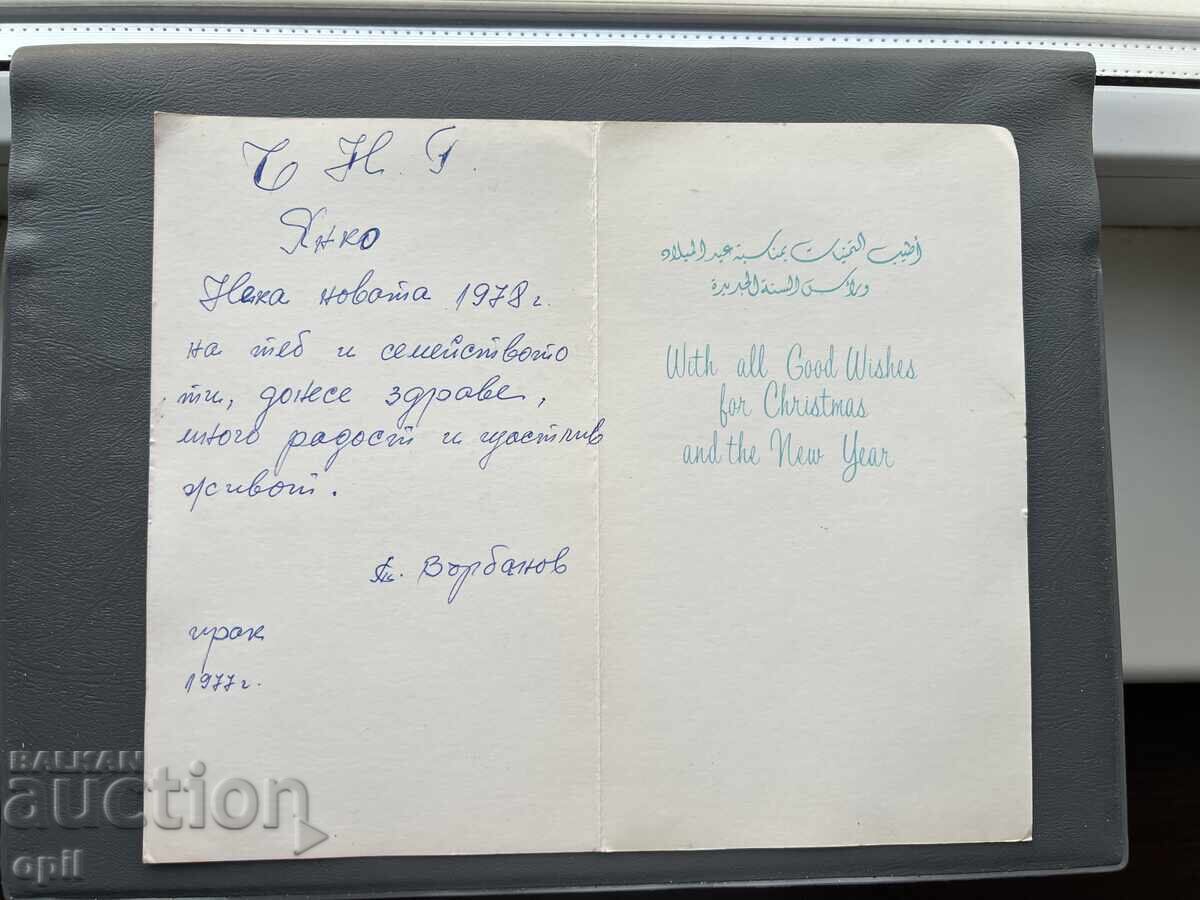 Ч Н. Г.
Янко
Нека новата 1978 г.
на теб и семейството
ти, донесе здраве,
много радост и щастлив
живот.
Върбанов
ирак
1977 г.
أطيب التمنيات بمناسبة عيد الميلاد
ورأس السنة الجديدة
With all Good Wishes
for Christmas
and the New Year
BALKAN
auction
opil